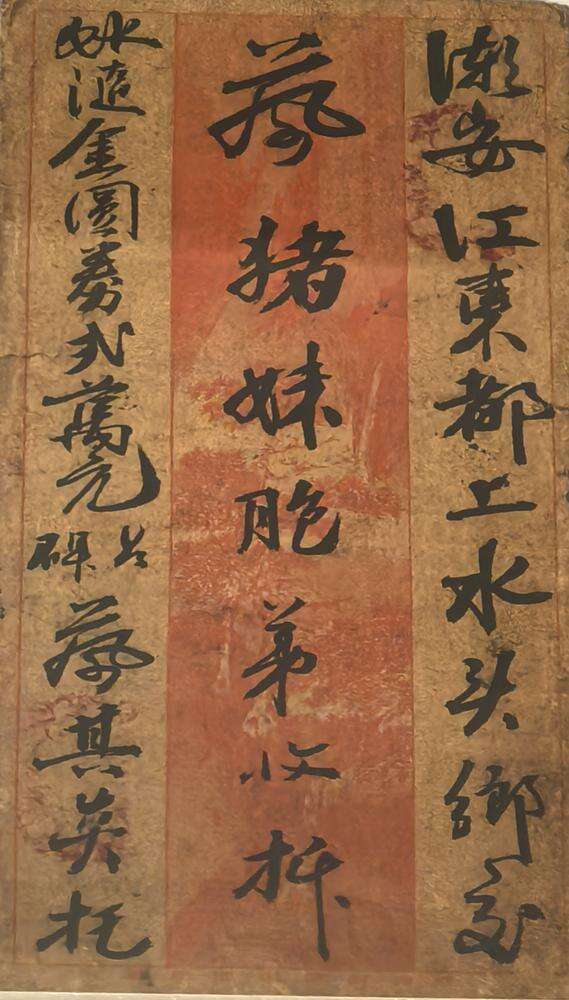 潮安江東都上水头鄉交
蔡猪妹胞弟收拆
外洋金圓券弍萬元
蔡其英托